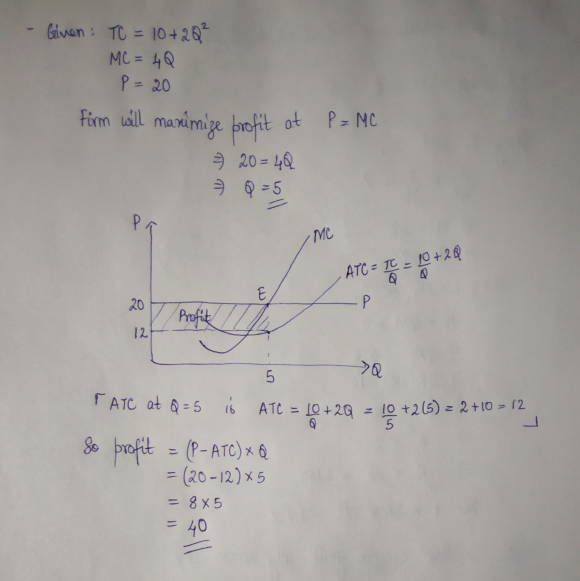 - Given: TC = 10+2Q²
MC = 4Q
P = 20
Firm will maximize profit at P = MC
⇒ 20 = 4Q
⇒ Q = 5
P
MC
ATC = TC/Q = 10/Q + 2Q
E
20
P
Profit
12
5
Q
⌈ ATC at Q=5 is ATC = 10/Q + 2Q = 10/5 + 2(5) = 2+10 = 12 ⌋
So profit = (P-ATC) × Q
= (20-12) × 5
= 8 × 5
= 40